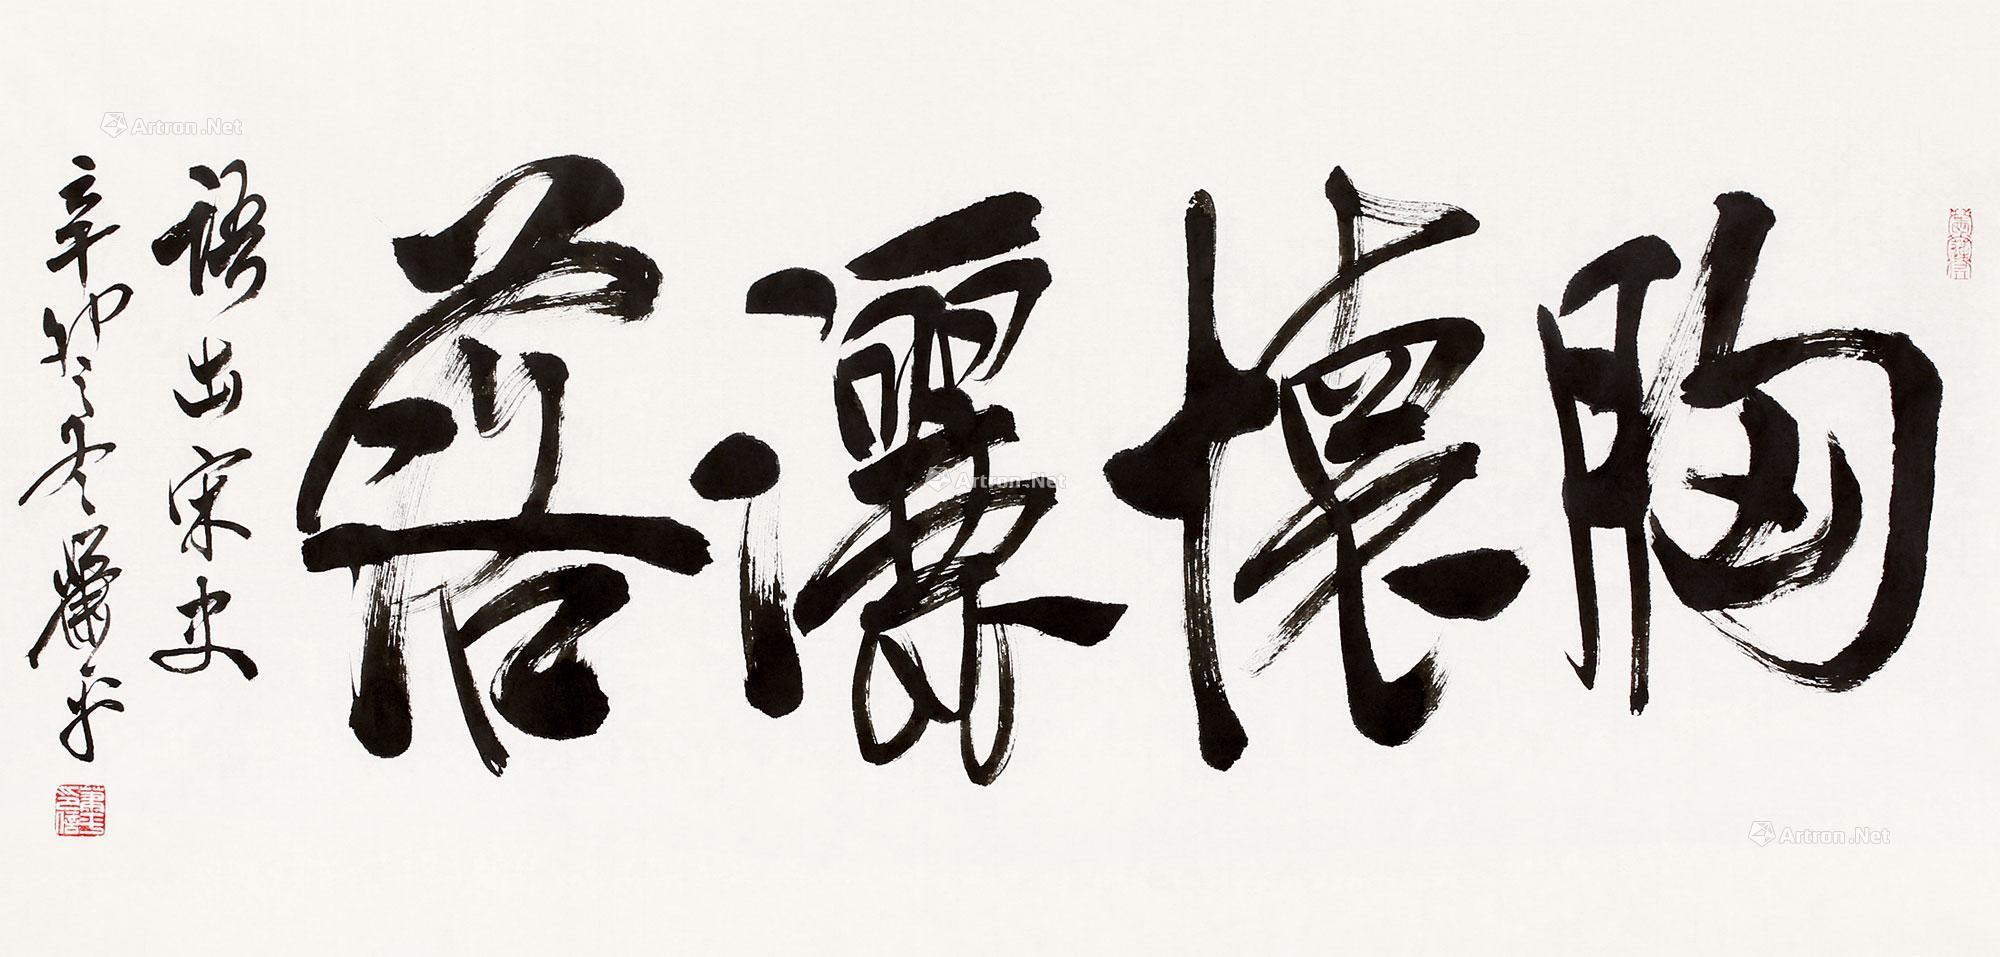 胸懷灑落
語出宋史
辛卯之冬
Artron.Net
Artron.Net
Artron.Net